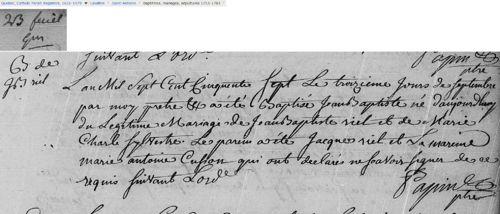 Quebec, Catholic Parish Registers, 1621-1979 Lavaltrie Saint-Antoine Baptêmes, mariages, sépultures 1732-1783
23 fueil
suivant L'ord.ce
Papin
ptre
B de
Jb. riel
L'an Mil Sept Cent Cinquente Sept Le troizieme Jours de Septembre
par moy pretre a été Baptisé Jean Baptiste né d'aujourd'huy
du Legitime Mariage de Jean Baptiste riel et de Marie
Charle Sylvestre. Les parein a été Jacque riel et La mareine
marie antoine Cusson qui ont declarés ne sçavoir signer de ce
requis suivant L'ord.ce
Papin
ptre